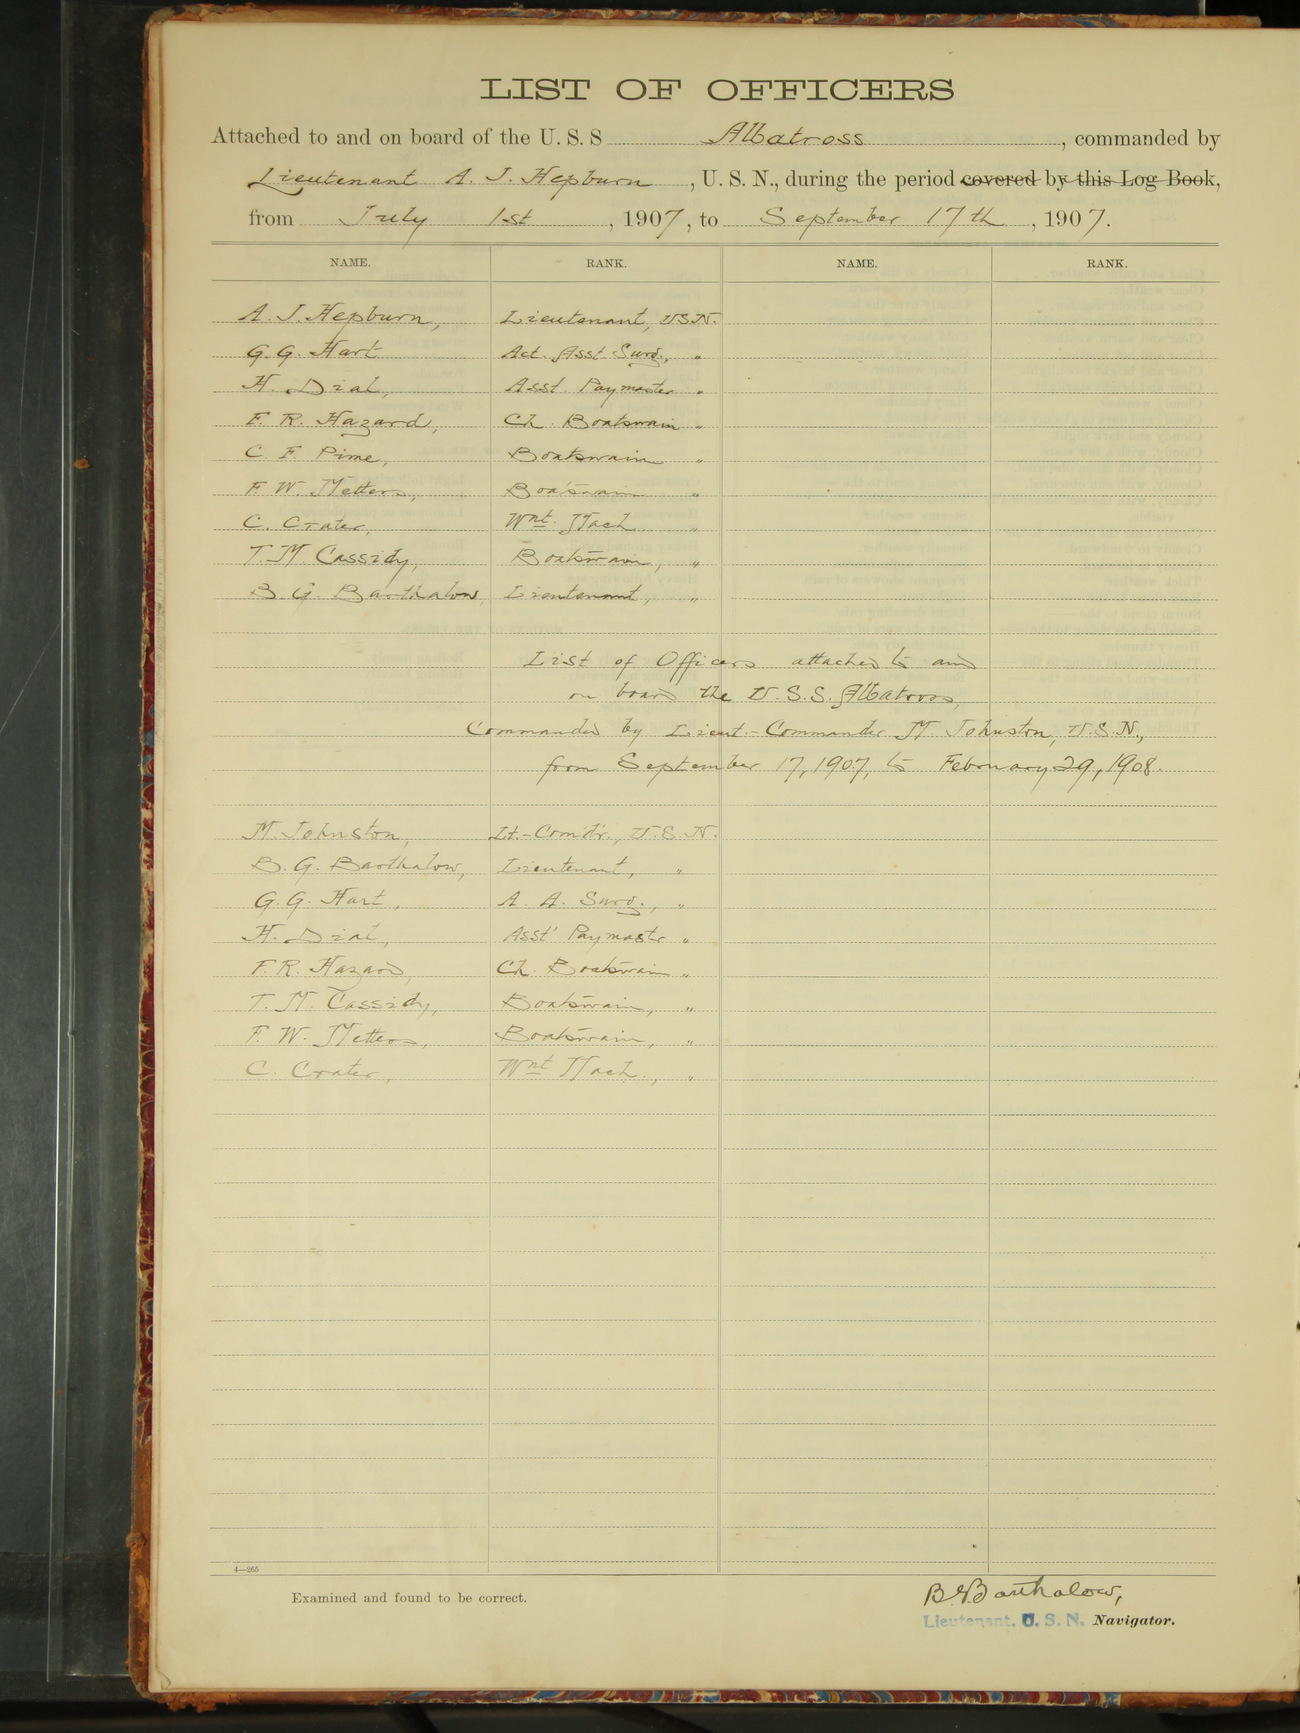 LIST OF OFFICERS
Attached to and on board of the U. S. S Albatross, commanded by
Lieutenant A. J. Hepburn, U. S. N., during the period covered by this Log Book,
from July 1st, 1907, to September 17th, 1907.
NAME. RANK. NAME. RANK.
A. J. Hepburn, Lieutenant, USN.
G. G. Hart Act. Asst Surg., "
H. Dial, Asst. Paymaster "
F. R. Hazard, Ch. Boatswain "
C F. Pime, Boatswain "
F. W. Metters, Boatswain "
C. Crater, Wnt. Mach "
T. M. Cassidy, Boatswain, "
B. G. Barthalow, Lieutenant, "
List of Officers attached to and
on board the U. S. S. Albatross,
Commanded by Lieut.-Commander M. Johnston, U.S.N.,
from September 17, 1907, to February 29, 1908.
M. Johnston, Lt.-Com'd'r., U.S.N.
B. G. Barthalow, Lieutenant, "
G. G. Hart, A. A. Surg., "
H. Dial, Asst' Paymastr "
F. R. Hazard, Ch. Boatswain "
T. M. Cassidy, Boatswain, "
F. W. Metters, Boatswain, "
C. Crater, Wnt Mach., "
4—265
Examined and found to be correct.
B. G. Barthalow,
Lieutenant, U. S. N. Navigator.